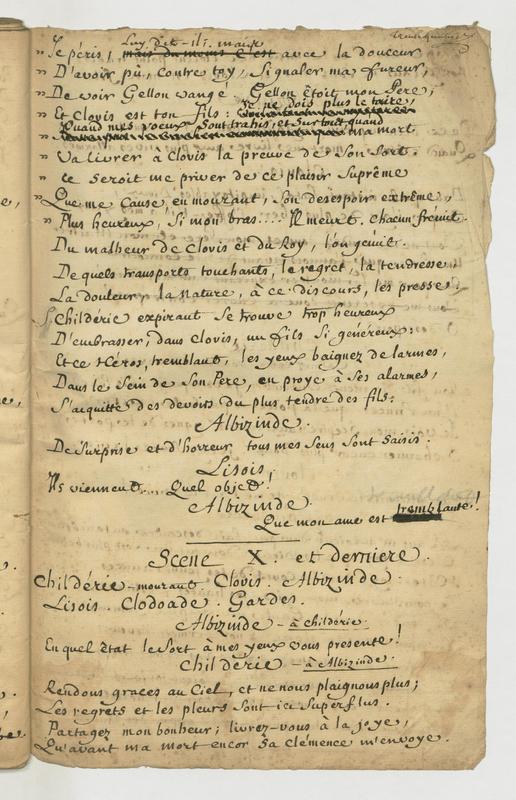 Luy dit-il: mais
" Je péris, mais du moins c'est avec la douceur
" D'avoir pû, contre toy, signaler ma fureur,
" De voir Gellon vangé. Gellon étoit mon Pere,
" Et Clovis est ton fils: Je ne dois plus le taire,
Quand mes voeux sont trahis, et surtout quand
" ma mort
" Va livrer à Clovis la preuve de son sort.
" Ce seroit me priver de ce plaisir suprême
" Que me cause, en mourant, son desespoir extrême,
" Plus heureux, si mon bras.... Il meurt. chacun frémit.
Du malheur de Clovis et du Roy, l'on gémit.
De quels transports touchants, le regret, la tendresse
La douleur, la nature, à ce discours, les presse!
Childéric expirant se trouve trop heureux
D'embrasser, dans Clovis, un fils si généreux:
Et ce Héros, tremblant, les yeux baignez de larmes,
Dans le sein de son Pere, en proye à ses alarmes,
S'acquitte des devoits du plus tendre des fils:
Albizinde.
De surprise et d'horreur tous mes sens sont saisis.
Lisois.
Ils viennent.... Quel objet!
Albizinde.
Que mon ame est tremblante!
Scene X. et derniere.
Childéric-mourant Clovis. Albizinde.
Lisois. Clodoade. Gardes.
Albizinde - à childéric.
En quel état le sort à mes yeux vous presente!
Childéric - à Albizinde.
Rendons graces au Ciel, et ne nous plaignons plus;
Les regrets et les pleurs sont ici superflus.
Partagez mon bonheur; livrez-vous à la joye,
Qu'avant ma mort encor sa clémence m'envoye.